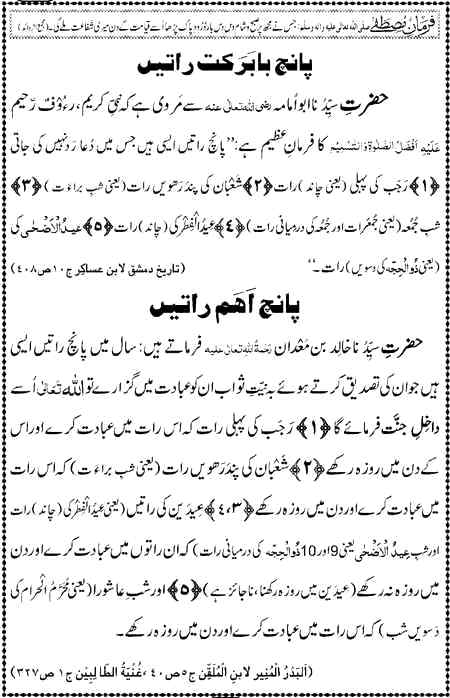 فرمانِ مصطفٰے صلی اللہ تعالٰی علیہ واٰلہٖ وسلم: جس نے مجھ پر صبح و شام دس دس بار درود پاک پڑھا اُسے قیامت کے دن میری شفاعت ملے گی۔ (مجمع الزوائد)
پانچ بابرکت راتیں
حضرتِ سیِّدُنا ابو اُمامہ رضی اللہ تعالٰی عنہ سے مَروی ہے کہ نبیِّ کریم، رءُوْفٌ رَّحیم
علَیْہِ اَفْضَلُ الصَّلٰوۃِ وَالتَّسْلِیْم کا فرمانِ عظیم ہے: ’’پانچ راتیں ایسی ہیں جس میں دُعا رَد نہیں کی جاتی
﴿۱﴾ رَجَب کی پہلی (یعنی چاند) رات ﴿۲﴾ شَعْبان کی پندرَھویں رات (یعنی شبِ براءَت) ﴿۳﴾
شبِ جُمُعہ (یعنی جُمعرات اور جُمُعہ کی درمیانی رات) ﴿۴﴾ عِیدُ الْفِطْر کی (چاند) رات ﴿۵﴾ عِیدُ الْاَضْحٰی کی
(یعنی ذُوالْحِجّہ کی دسویں) رات۔‘‘ (تاریخ دمشق لابن عساکِر ج۱۰ ص۴۰۸)
پانچ اَہم راتیں
حضرتِ سیِّدُنا خالِد بن مَعْدان رَحْمَۃُ اللہِ تعالٰی علیہ فرماتے ہیں: سال میں پانچ راتیں ایسی
ہیں جو ان کی تصدیق کرتے ہوئے بہ نیّتِ ثواب ان کو عبادت میں گزارے تو اللہ تَعَالٰی اُسے
داخلِ جنَّت فرمائے گا ﴿۱﴾ رَجَب کی پہلی رات کہ اس رات میں عبادت کرے اور اس
کے دن میں روزہ رکھے ﴿۲﴾ شَعْبان کی پندرَھویں رات (یعنی شبِ براءَت) کہ اس رات
میں عبادت کرے اور دن میں روزہ رکھے ﴿۳،۴﴾ عِیدَین کی راتیں (یعنی عیدُ الْفِطْر کی (چاند) رات
اور شبِ عِیدُ الْاَضْحٰی یعنی 9 اور 10 ذُوالْحِجّہ کی درمیانی رات) کہ ان راتوں میں عبادت کرے اور دن
میں روزہ نہ رکھے (عیدَین میں روزہ رکھنا، ناجائز ہے) ﴿۵﴾ اور شبِ عاشورا (یعنی مُحَرَّمُ الْحرام کی
دَسویں شب) کہ اس رات میں عبادت کرے اور دن میں روزہ رکھے۔
(اَلْبَدْرُ الْمُنِیر لابنِ الْمُلَقِّن ج۵ ص۴۰، غُنْیَۃُ الطَّالِبِیْن ج۱ ص۳۲۷)